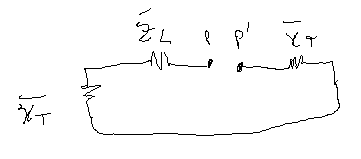 Z̄L P P' X̄T
X̄T